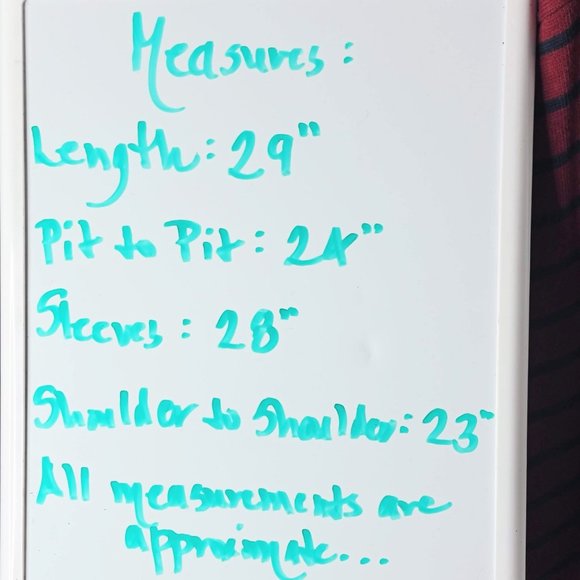 Measures:
Length: 29"
Pit to Pit: 24"
Sleeves: 28"
Shoulder to Shoulder: 23"
All measurements are
approximate...